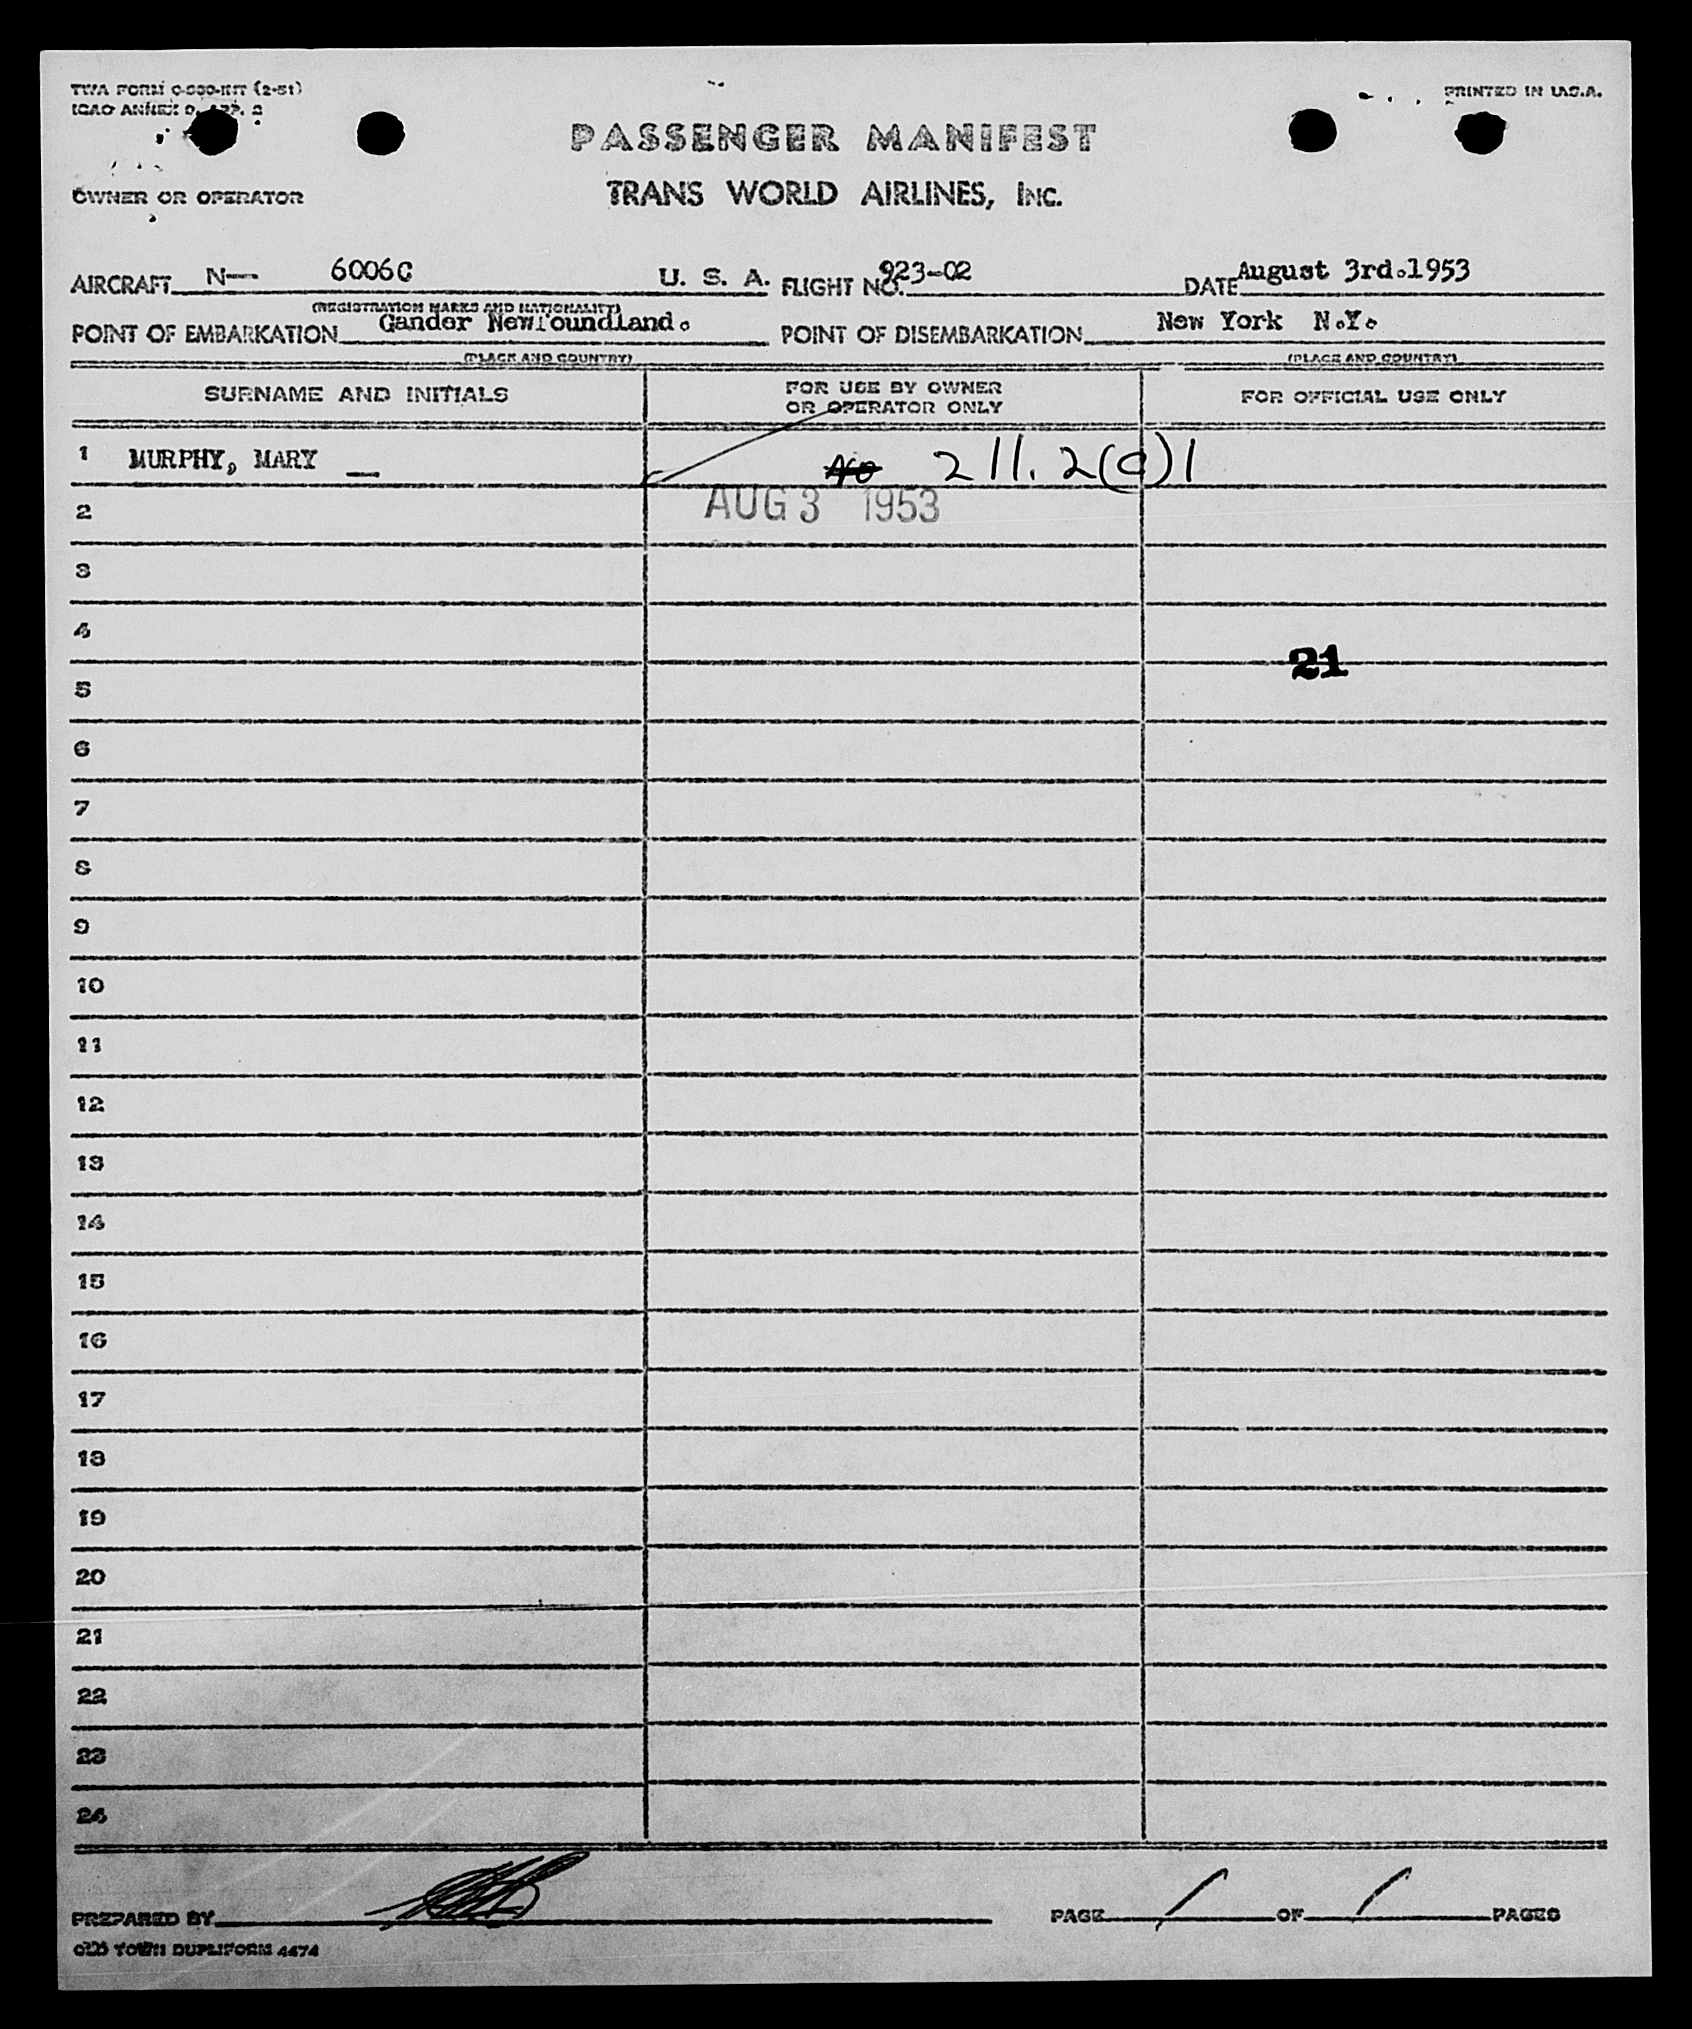 TWA FORM
PRINTED IN U.S.A.
ICAO ANNEX 9, APP. 2
PASSENGER MANIFEST
OWNER OR OPERATOR
TRANS WORLD AIRLINES, INC.
AIRCRAFT N— 6006C U. S. A. FLIGHT NO. 923-02 DATE August 3rd.1953
(REGISTRATION MARKS AND NATIONALITY)
POINT OF EMBARKATION Gander Newfoundland. POINT OF DISEMBARKATION New York N.Y.
(PLACE AND COUNTRY) (PLACE AND COUNTRY)
SURNAME AND INITIALS FOR USE BY OWNER OR OPERATOR ONLY FOR OFFICIAL USE ONLY
1 MURPHY, MARY — 211.2(c)1
2 AUG 3 1953
3
4
21
5
6
7
8
9
10
11
12
13
14
15
16
17
18
19
20
21
22
23
24
PREPARED BY PAGE 1 OF 1 PAGES
OLD TOWN DUPLIFORM 4474